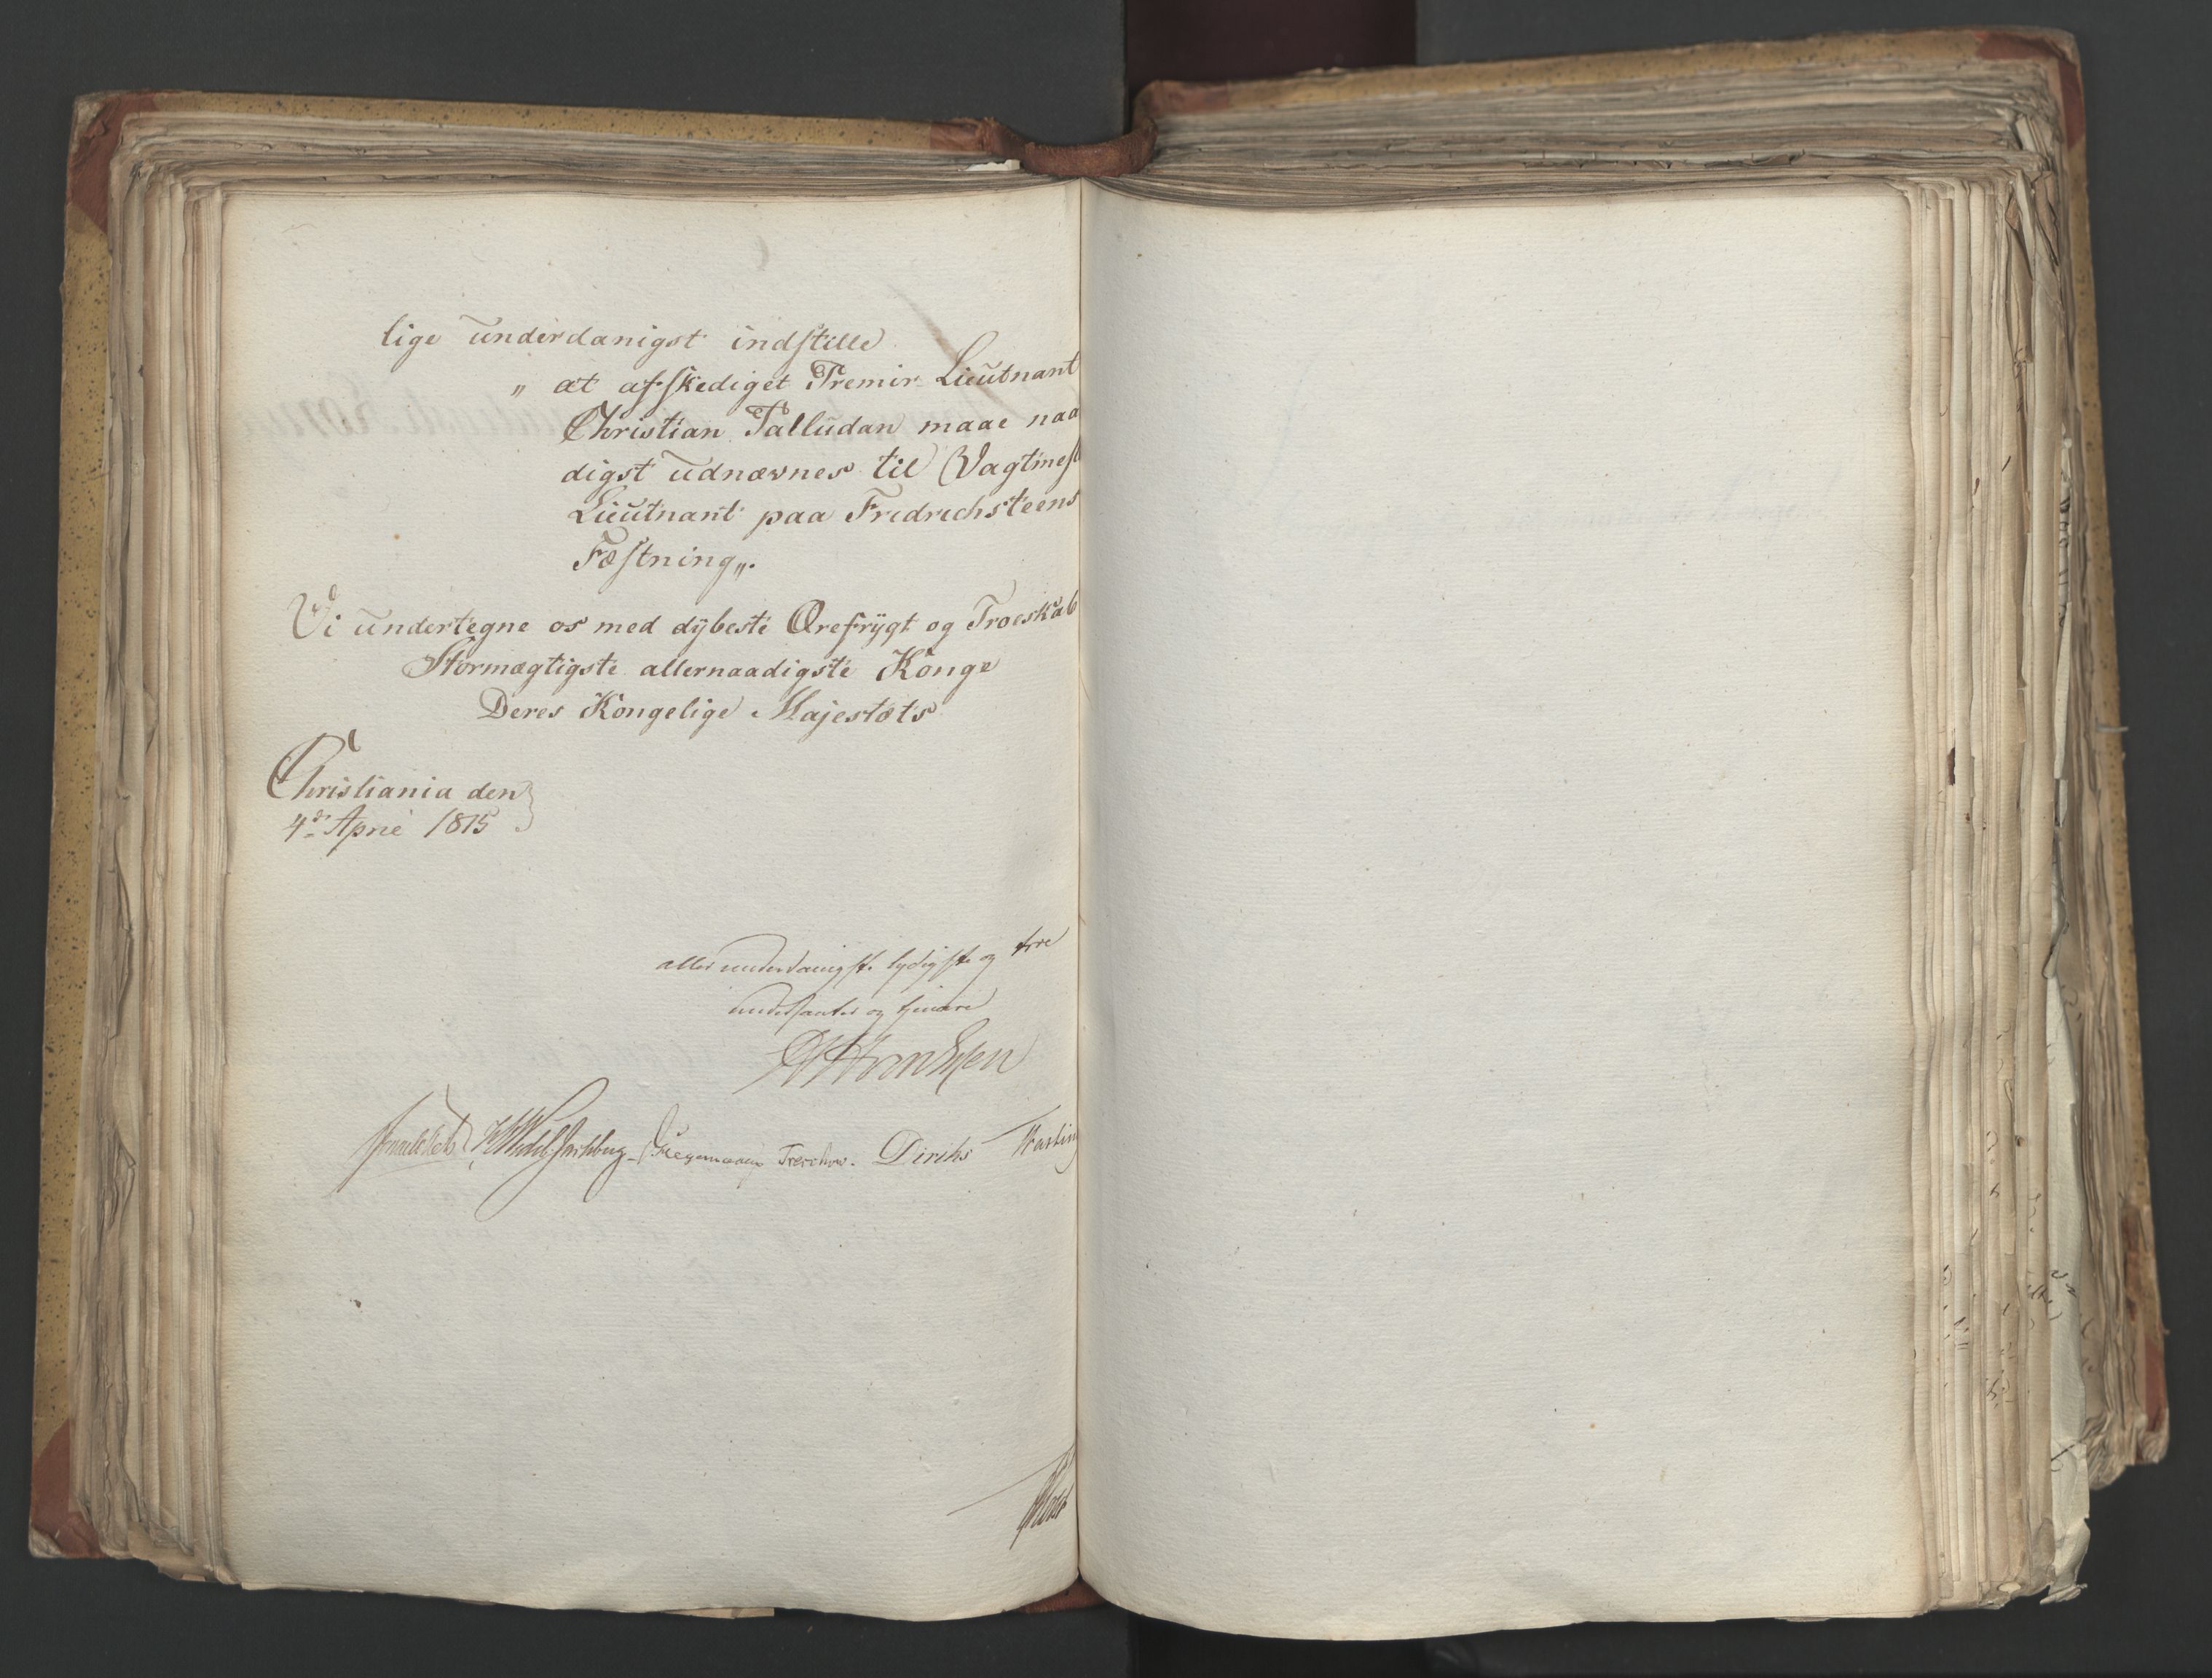 lige underdanigst indstille
„ at afskediget Premir Lieutnant
Christian Palludan maae naa
digst udnævnes til Vagtmest
Lieutnant paa Fredrichsteens
Fæstning„.
Vi undertegne os med dybeste Ærefrygt og Troeskab
Stormægtigste allernaadigste Konge
Deres Kongelige Majestæts
Christiania den
4de April 1815
allerunderdanigste lydigste og troe
undersaatter og tjenere
Treschow. Diriks